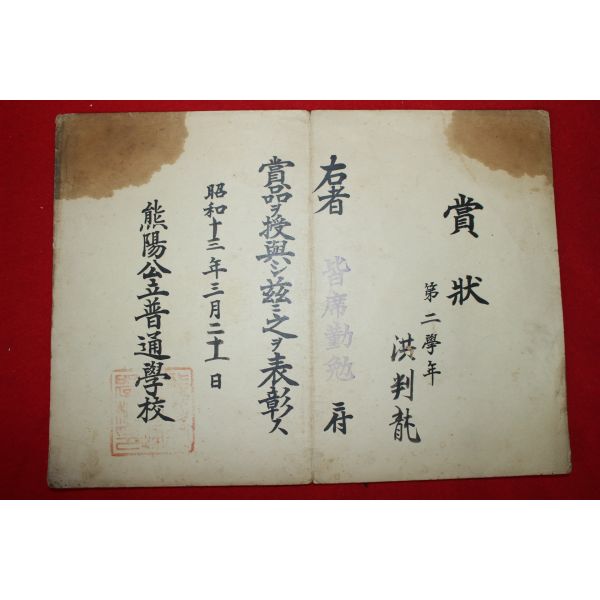 賞狀
第二學年
洪判龍
右者 皆席勤勉 ニ付
賞品ヲ授與シ茲ニ之ヲ表彰ス
昭和十三年三月二十二日
熊陽公立普通學校